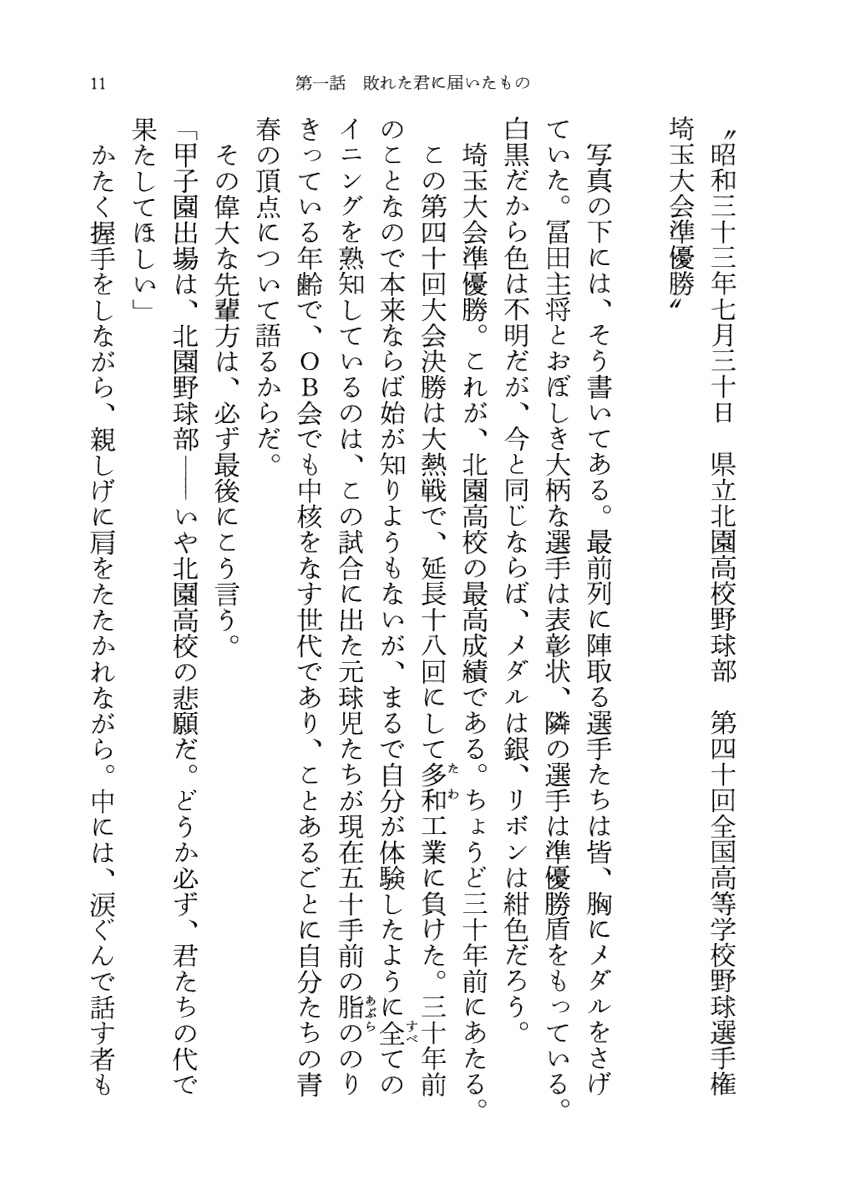 11
第一話　敗れた君に届いたもの
〝昭和三十三年七月三十日　県立北園高校野球部　第四十回全国高等学校野球選手権
埼玉大会準優勝〟
写真の下には、そう書いてある。最前列に陣取る選手たちは皆、胸にメダルをさげ
ていた。冨田主将とおぼしき大柄な選手は表彰状、隣の選手は準優勝盾をもっている。
白黒だから色は不明だが、今と同じならば、メダルは銀、リボンは紺色だろう。
埼玉大会準優勝。これが、北園高校の最高成績である。ちょうど三十年前にあたる。
この第四十回大会決勝は大熱戦で、延長十八回にして多和工業に負けた。三十年前
のことなので本来ならば始が知りようもないが、まるで自分が体験したように全ての
イニングを熟知しているのは、この試合に出た元球児たちが現在五十手前の脂ののり
きっている年齢で、ＯＢ会でも中核をなす世代であり、ことあるごとに自分たちの青
春の頂点について語るからだ。
その偉大な先輩方は、必ず最後にこう言う。
「甲子園出場は、北園野球部――いや北園高校の悲願だ。どうか必ず、君たちの代で
果たしてほしい」
かたく握手をしながら、親しげに肩をたたかれながら。中には、涙ぐんで話す者も